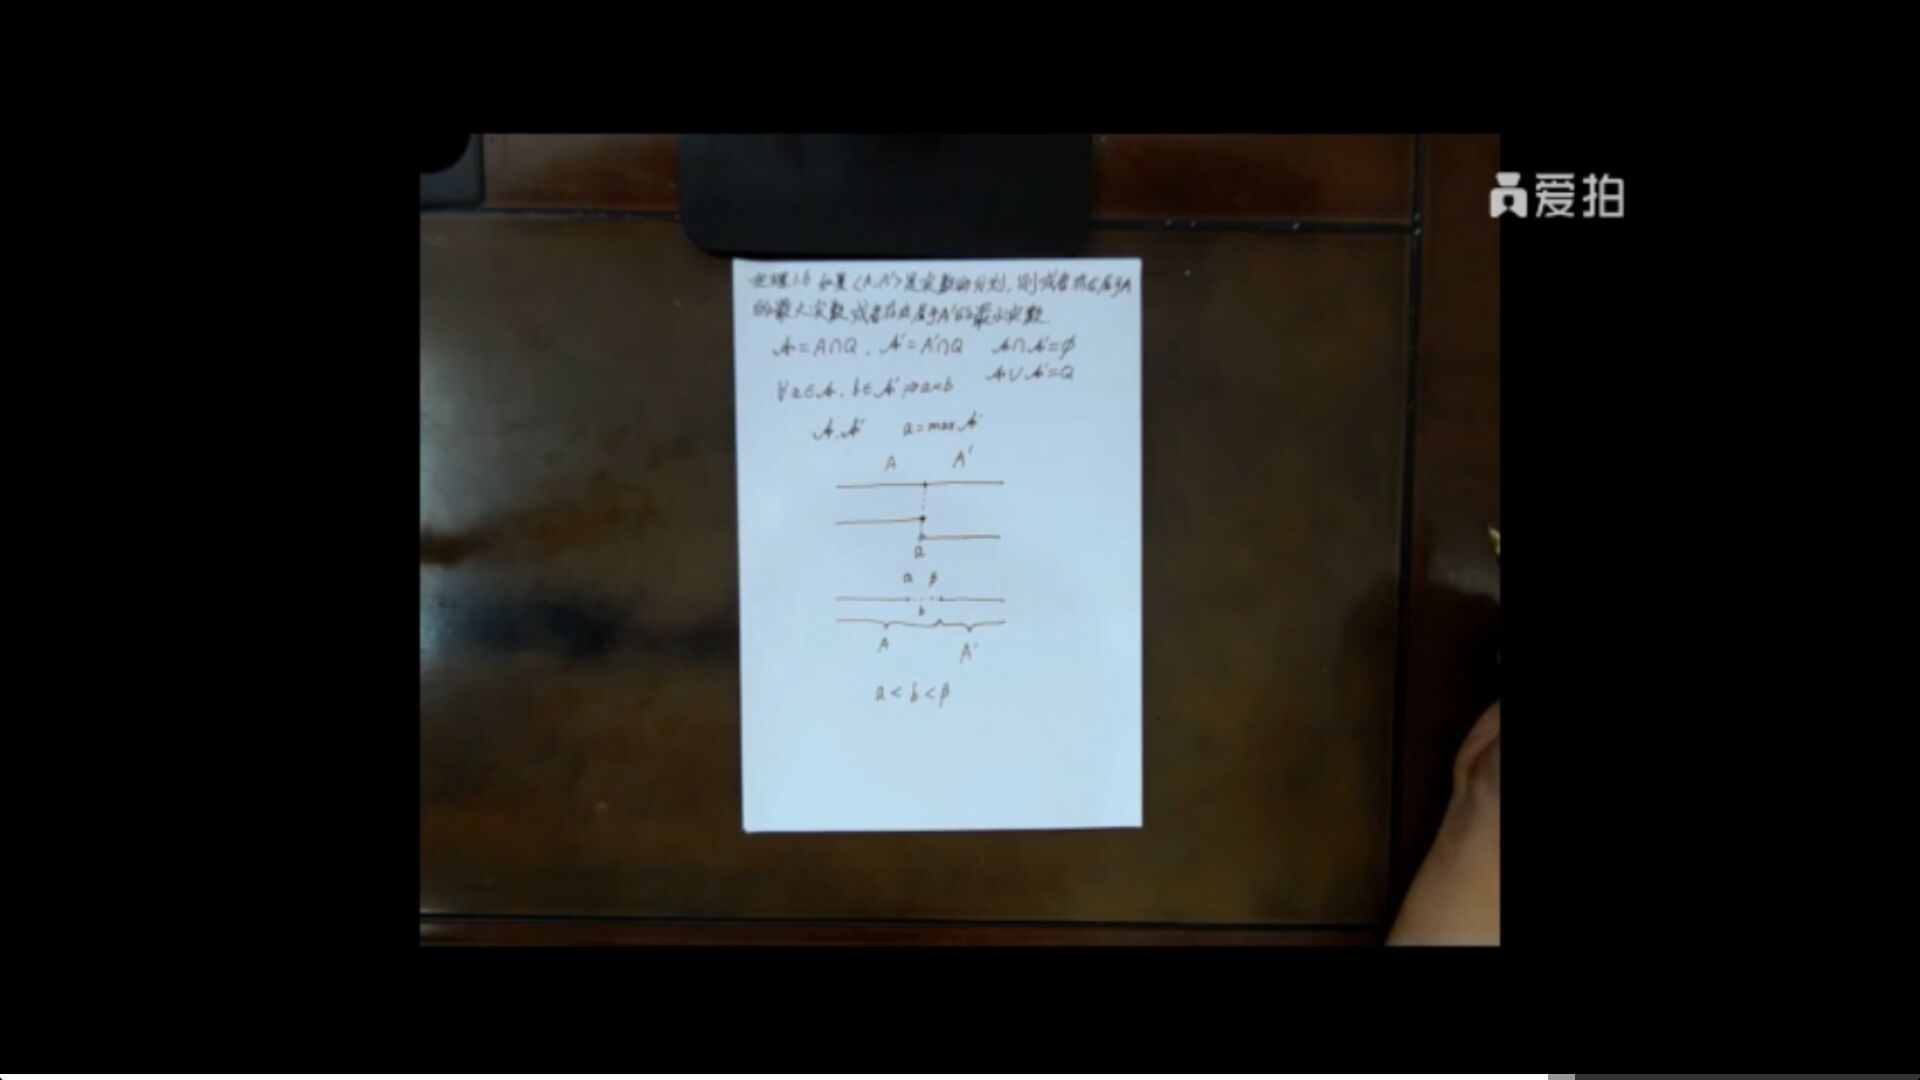 爱拍
定理1.6 如果〈A,A'〉是实数的分划,则或者存在属于A
的最大实数或者存在属于A'的最小实数.
𝒜=A∩Q, 𝒜'=A'∩Q 𝒜∩𝒜'=∅
𝒜∪𝒜'=Q
∀a∈𝒜, b∈𝒜',⇒a<b
𝒜,𝒜' a=max𝒜'
A A'
a
a β
b
A A'
a<b<β